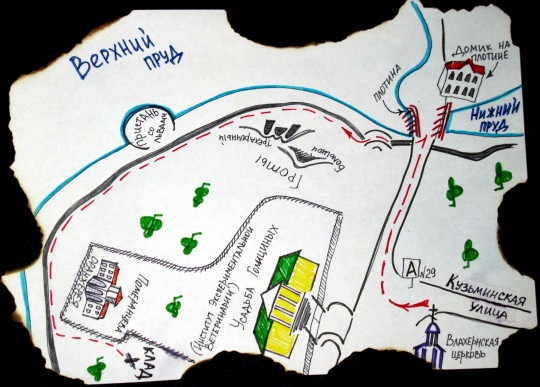 Верхний
пруд
Домик на
плотине
плотина
Нижний
пруд
Пристань
со
львами
Трехарочный
большой
Гроты
А
N29
Кузьминская
улица
Влахернская
церковь
Усадьба Голициных
(Институт экспериментальной
ветеринарии)
Померанцевая
оранжерея
КЛАД